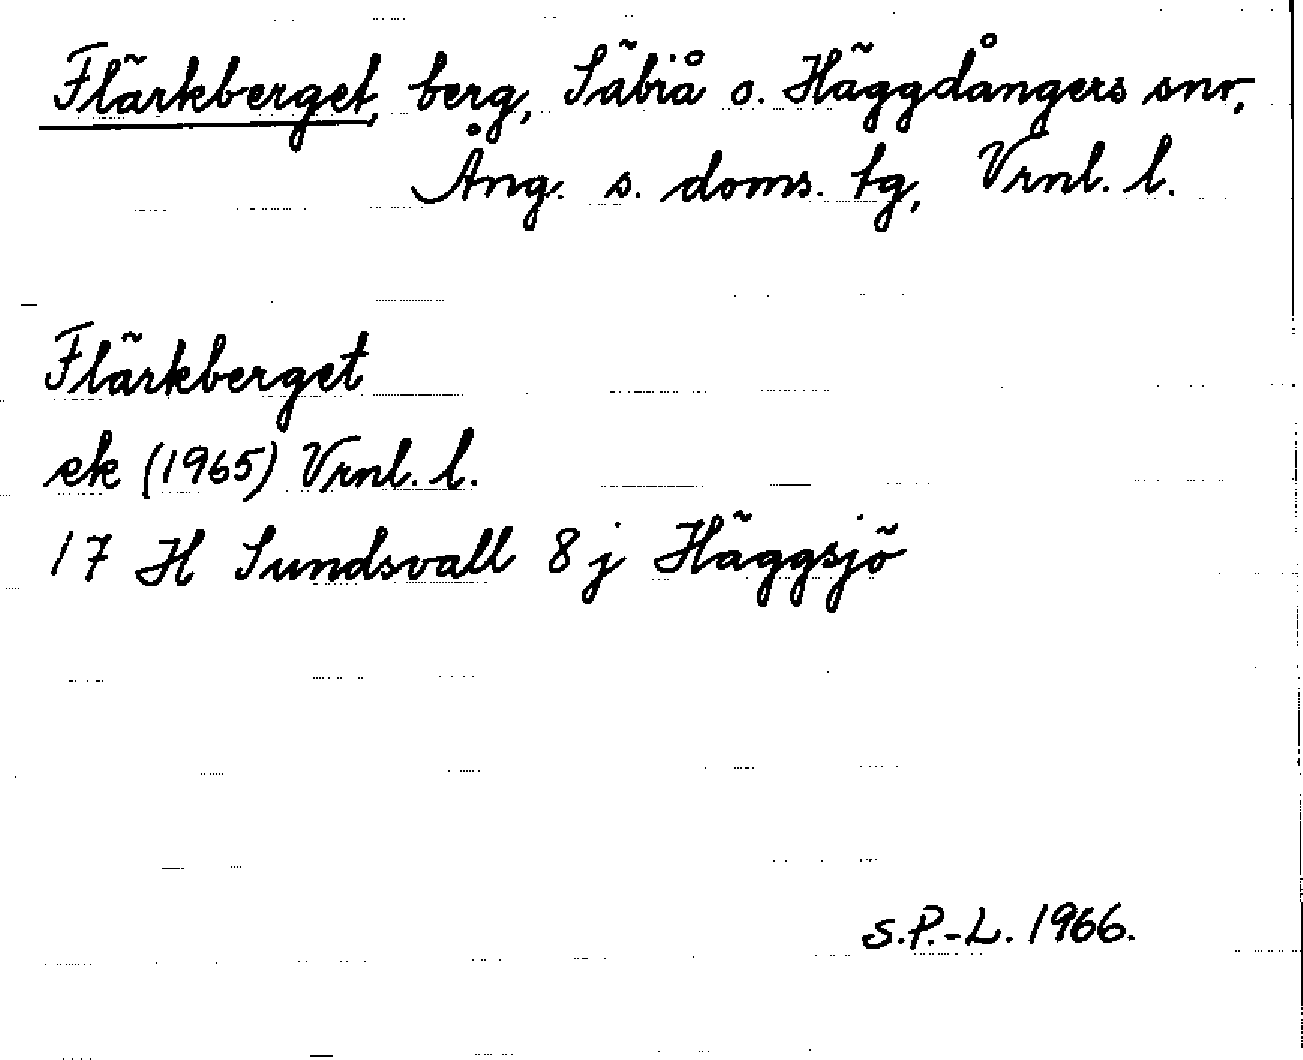 Flärkberget, berg, Säbrå o. Häggdångers snr,
Ång. s. doms. tg, Vrnl. l.
Flärkberget
ek (1965) Vrnl. l.
17 H Sundsvall 8 j Häggsjö
S.P.-L. 1966.